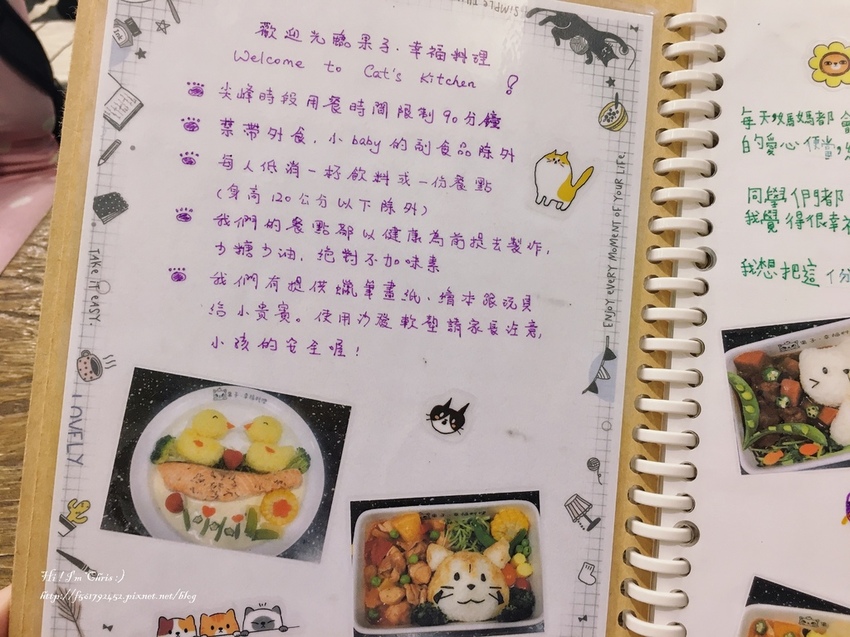 SIMPLE
歡迎光臨果子·幸福料理
Welcome to Cat's Kitchen
尖峰時段用餐時間限制90分鐘
禁帶外食,小baby的副食品除外
每人低消一杯飲料或一份餐點
(身高120公分以下除外)
我們的餐點都以健康為前提去製作,
少糖少油,絕對不加味素
我們有提供蠟筆畫紙、繪本跟玩具
給小貴賓。使用沙發軟墊請家長注意,
小孩的安全喔!
TAKE IT EASY.
LOVELLY
ENJOY EVERY MOMENT OF YOUR LIFE!
果子·幸福料理
每天
媽都會
的愛心便當,
同學們都
我覺得很幸
我想把這1分
Hi ! I'm Chris :)
http://f561792452.pixnet.net/blog